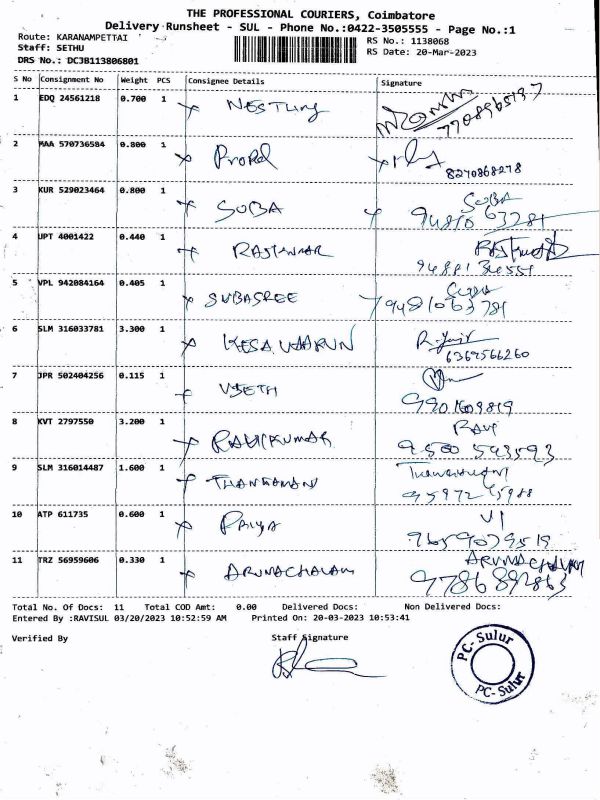 THE PROFESSIONAL COURIERS, Coimbatore
Delivery Runsheet - SUL - Phone No.:0422-3505555 - Page No.:1
Route: KARANAMPETTAI RS No.: 1138068
Staff: SETHU RS Date: 20-Mar-2023
DRS No.: DCJB113806801
S No Consignment No Weight PCS Consignee Details Signature
1 EDQ 24561218 0.700 1
2 MAA 570736584 0.800 1 8270868278
3 KUR 529023464 0.800 1 SUBA SUBA
4 UPT 4001422 0.440 1 RAJKUMAR
5 VPL 942084164 0.405 1 SUBASREE
9481063781
6 SLM 316033781 3.300 1
6369566260
7 JPR 502404256 0.115 1
9901609819
8 KVT 2797550 3.200 1 RAVIKUMAR RAVI
9500543593
9 SLM 316014487 1.600 1
10 ATP 611735 0.600 1 PRIYA VI
9659079519
11 TRZ 56959606 0.330 1 ARUNACHALAM ARUNACHALAM
Total No. Of Docs: 11 Total COD Amt: 0.00 Delivered Docs: Non Delivered Docs:
Entered By :RAVISUL 03/20/2023 10:52:59 AM Printed On: 20-03-2023 10:53:41
Verified By Staff Signature
PC-Sulur
PC-Sulur